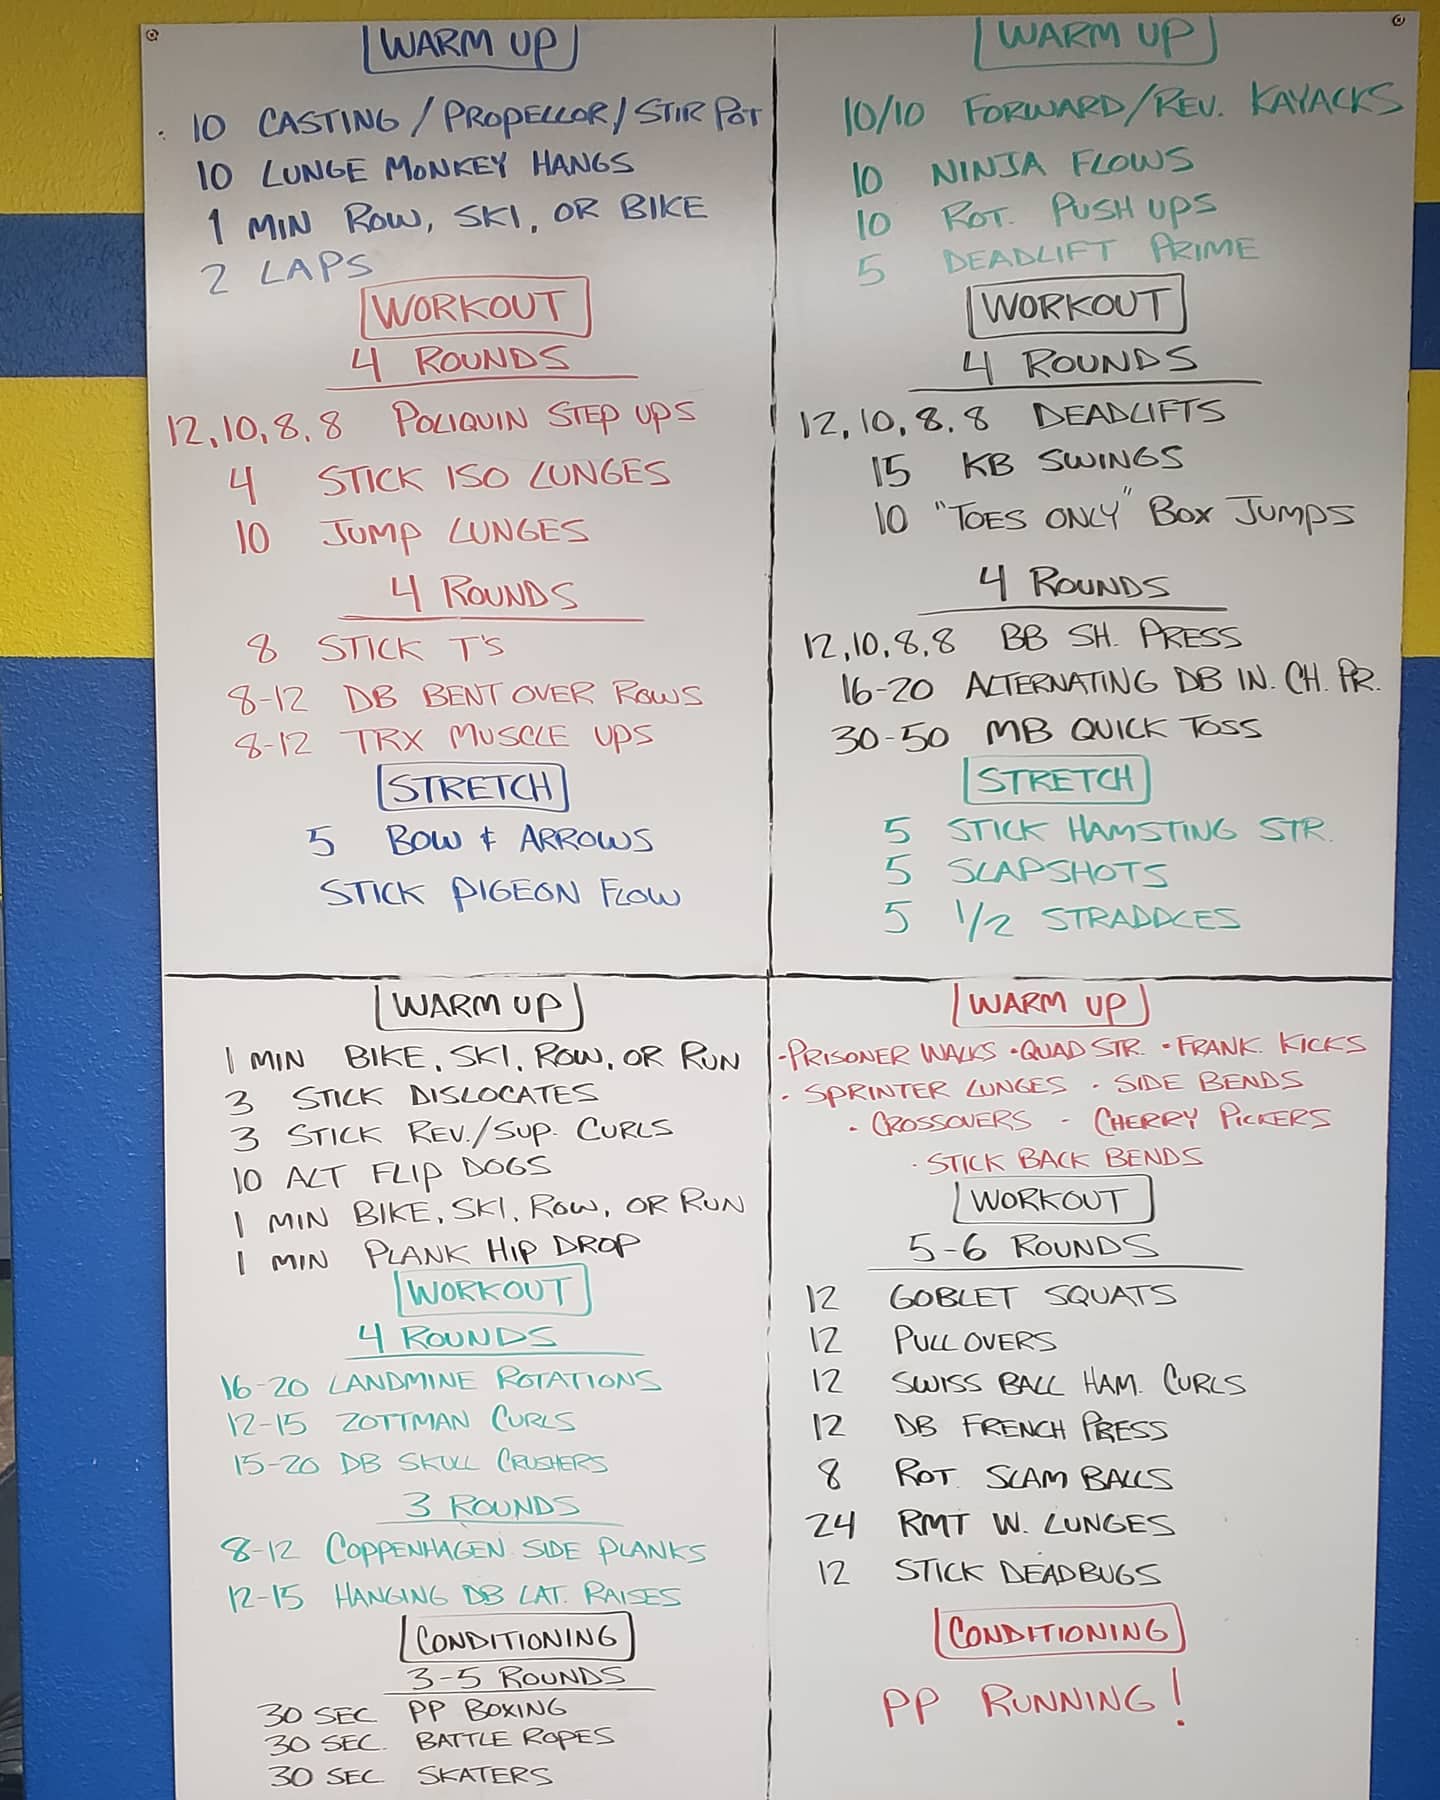 WARM UP
10 CASTING / PROPELLOR / STIR POT
10 LUNGE MONKEY HANGS
1 MIN ROW, SKI, OR BIKE
2 LAPS
WORKOUT
4 ROUNDS
12, 10, 8, 8 POLIQUIN STEP UPS
4 STICK ISO LUNGES
10 JUMP LUNGES
4 ROUNDS
8 STICK T'S
8-12 DB BENT OVER ROWS
8-12 TRX MUSCLE UPS
STRETCH
5 BOW & ARROWS
STICK PIGEON FLOW
WARM UP
10/10 FORWARD/REV. KAYACKS
10 NINJA FLOWS
10 ROT. PUSH UPS
5 DEADLIFT PRIME
WORKOUT
4 ROUNDS
12, 10, 8, 8 DEADLIFTS
15 KB SWINGS
10 "TOES ONLY" BOX JUMPS
4 ROUNDS
12, 10, 8, 8 BB SH. PRESS
16-20 ALTERNATING DB IN. CH. PR.
30-50 MB QUICK TOSS
STRETCH
5 STICK HAMSTING STR.
5 SLAPSHOTS
5 1/2 STRADDLES
WARM UP
1 MIN BIKE, SKI, ROW, OR RUN
3 STICK DISLOCATES
3 STICK REV./SUP. CURLS
10 ALT FLIP DOGS
1 MIN BIKE, SKI, ROW, OR RUN
1 MIN PLANK HIP DROP
WORKOUT
4 ROUNDS
16-20 LANDMINE ROTATIONS
12-15 ZOTTMAN CURLS
15-20 DB SKULL CRUSHERS
3 ROUNDS
8-12 COPPENHAGEN SIDE PLANKS
12-15 HANGING DB LAT. RAISES
CONDITIONING
3-5 ROUNDS
30 SEC PP BOXING
30 SEC. BATTLE ROPES
30 SEC SKATERS
WARM UP
- PRISONER WALKS • QUAD STR. • FRANK. KICKS
• SPRINTER LUNGES • SIDE BENDS
• CROSSOVERS - CHERRY PICKERS
• STICK BACK BENDS
WORKOUT
5-6 ROUNDS
12 GOBLET SQUATS
12 PULLOVERS
12 SWISS BALL HAM. CURLS
12 DB FRENCH PRESS
8 ROT. SLAM BALLS
24 RMT W. LUNGES
12 STICK DEADBUGS
CONDITIONING
PP RUNNING!